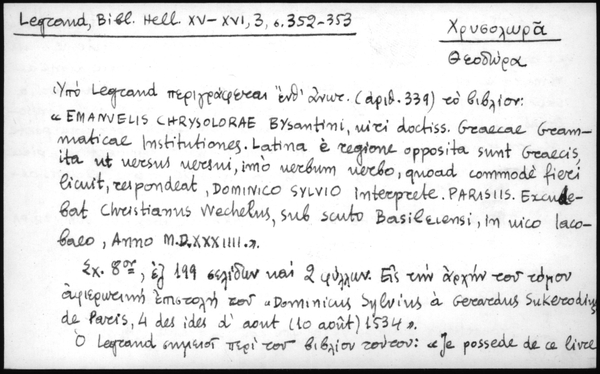 Legrand, Bibl. Hell. XV–XVI, 3, σ. 352-353
Χρυσολωρᾶ
Θεοδώρα
Ὑπό Legrand περιγράφεται ἔνθ' ἄνωτ. (ἀριθ. 339) τὸ βιβλίον:
« EMANVELIS CHRYSOLORAE BYsantini, uiri doctiss. Graecae Gram-
maticae Institutiones. Latina è regione opposita sunt Graecis,
ita ut uersus uersui, imò uerbum uerbo, quoad commodè fieri
licuit, respondeat, DOMINICO SYLVIO interprete. PARISIIS. Excude-
bat Christianus Wechelus, sub scuto Basileiensi, in uico Iaco-
baeo, Anno M.D.XXXIIII.».
Σχ. 8ον, ἐξ 199 σελίδων καὶ 2 φύλλων. Εἰς τὴν ἀρχήν του τόμου
ἀφιερωτική ἐπιστολή του «Dominicus Sylvius à Gerardus Sukerodius
de Paris, 4 des ides d' aout (10 août) 1534».
Ὁ Legrand σημειοῖ περί του βιβλίου τούτου: «Je possede de ce livre